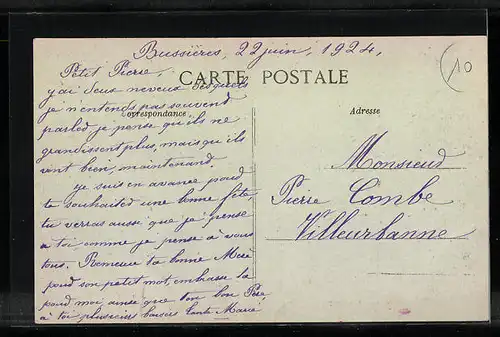 Bussières, 22 juin, 1924,
10
CARTE POSTALE
Correspondance
Adresse
Petit Pierre,
j'ai deux neveux desquels
je n'entends pas souvend
parled je pense qu'ils ne
grandissent plus, mais qu'ils
vont bien, maintenand.
je suis en avance poud
te souhaited une bonne fête,
tu verras aussi que je pense
a toi comme je pense à vous
tous. Remercie ta bonne Mère
poud son petit mot, embrasse la
poud moi, ainsi que ton bon Père,
à toi plusieurs baisers tante Marie
Monsieud
Pierre Combe
Villeurbanne